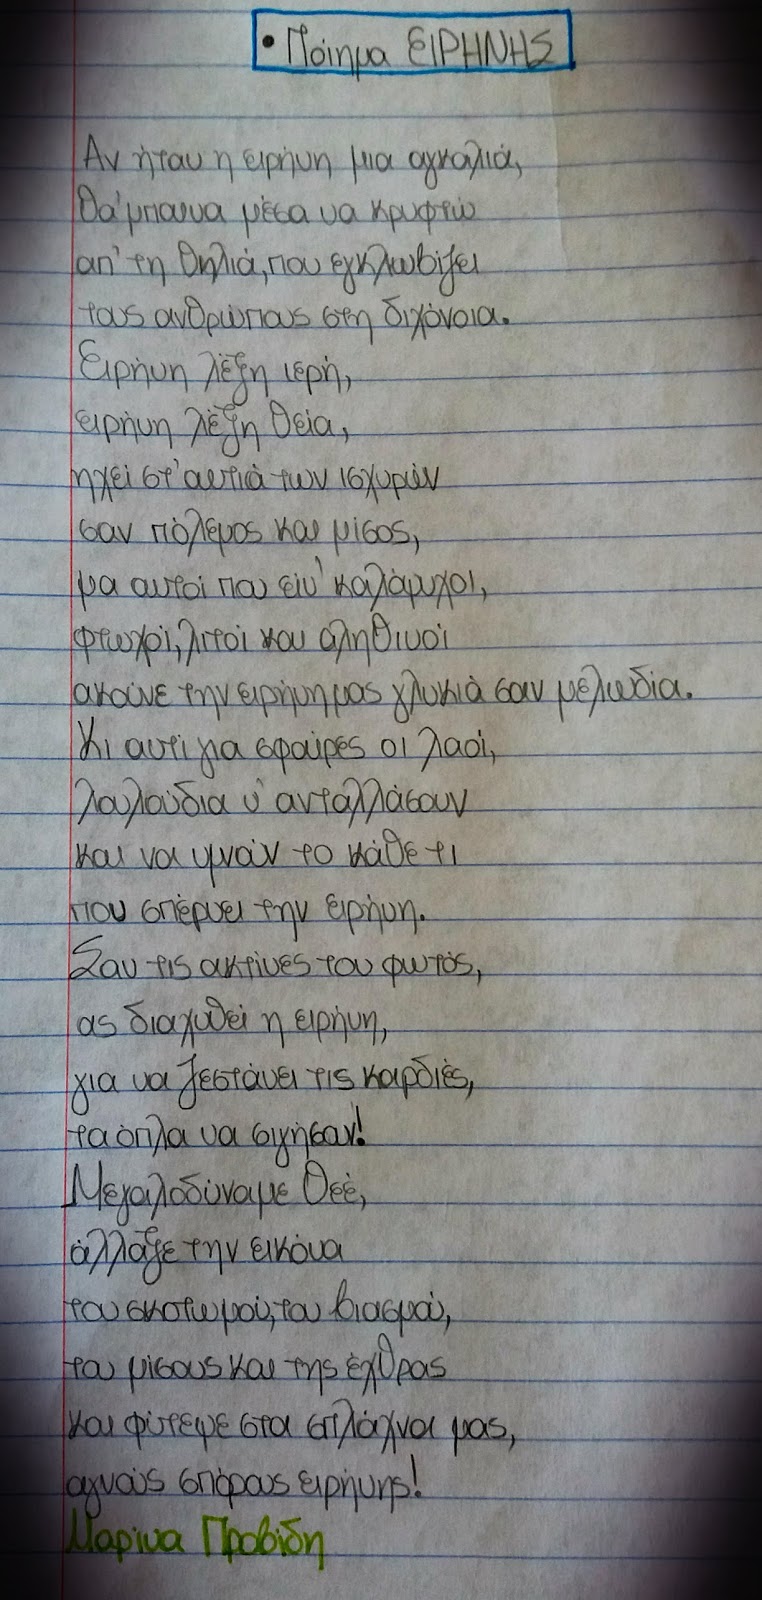 • Ποίημα ΕΙΡΗΝΗΣ
Αν ήταν η ειρήνη μια αγκαλιά,
θα 'μπαινα μέσα να κρυφτώ
απ' τη θηλιά, που εγκλωβίζει
τους ανθρώπους στη διχόνοια.
Ειρήνη λέξη ιερή,
ειρήνη λέξη θεία,
ηχεί στ' αυτιά των ισχυρών
σαν πόλεμος και μίσος,
μα αυτοί που είν' καλόψυχοι,
φτωχοί, λιτοί και αληθινοί
ακούνε την ειρήνη μας γλυκιά σαν μελωδία.
Κι αντί για σφαίρες οι λαοί,
λουλούδια ν' ανταλλάσουν
και να υμνούν το κάθε τι
που σπέρνει την ειρήνη.
Σαν τις ακτίνες του φωτός,
ας διαχυθεί η ειρήνη,
για να ζεστάνει τις καρδιές,
τα όπλα να σιγήσαν!
Μεγαλοδύναμε Θεέ,
άλλαξε την εικόνα
του σκοτωμού, του βιασμού,
του μίσους και της έχθρας
και φύτεψε στα σπλάχνα μας,
αγνούς σπόρους ειρήνης!
Μαρίνα Προβίδη